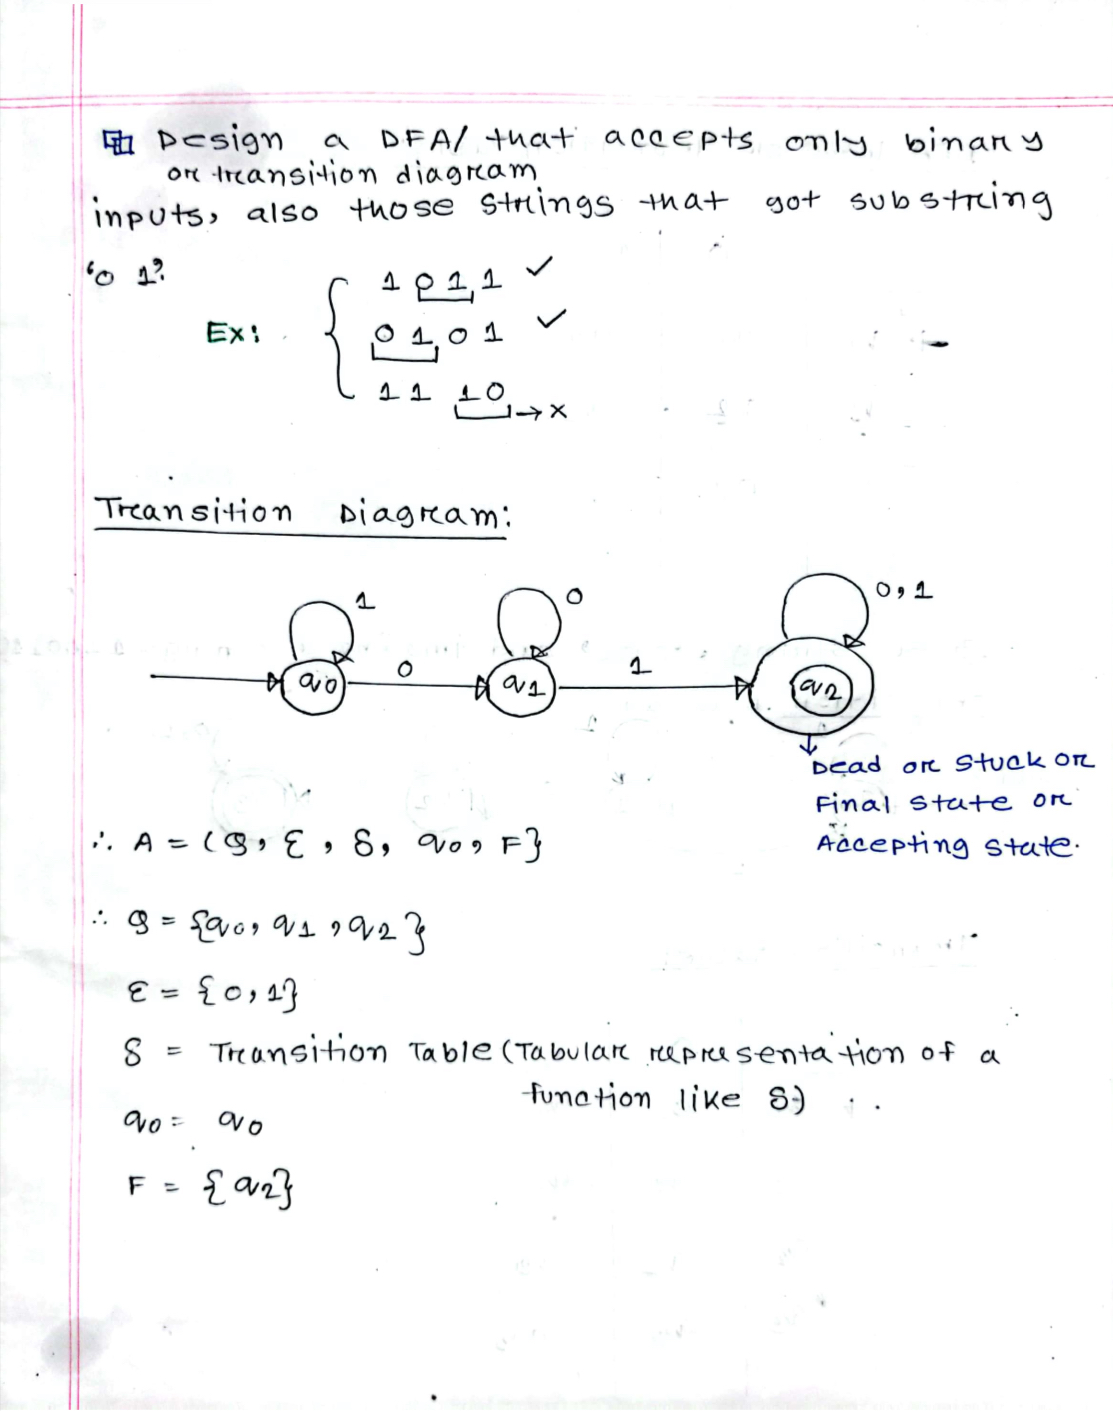 Design a DFA/ that accepts only binary
or transition diagram
inputs, also those strings that got substring
'0 1'.
Ex:
1 0 1, 1 ✓
0 1, 0 1 ✓
1 1 1 0 → x
Transition Diagram:
1
0
0,1
q0
0
q1
1
q2
Dead or Stuck or
Final state or
Accepting state.
∴ A = (Q, Σ, δ, q0, F}
∴ Q = {q0, q1, q2}
Σ = {0,1}
δ = Transition Table (Tabular representation of a
function like δ)
q0 = q0
F = {q2}